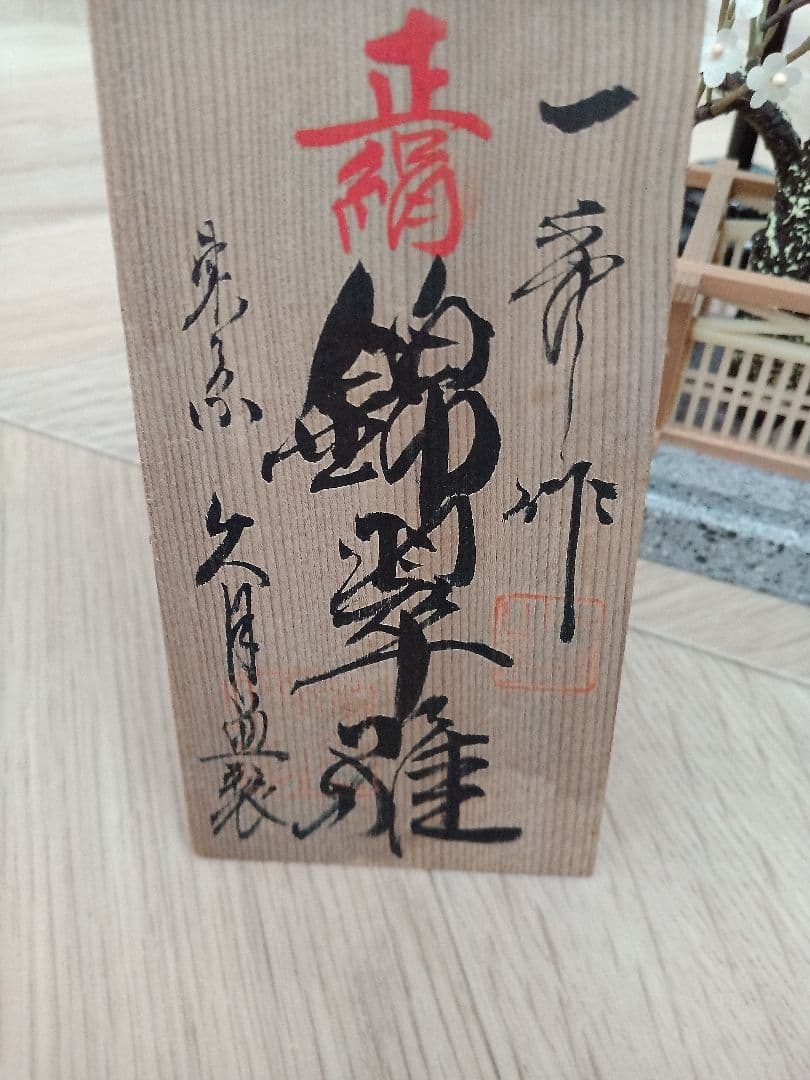 一秀作
正絹
錦翠雛
東京 久月監製